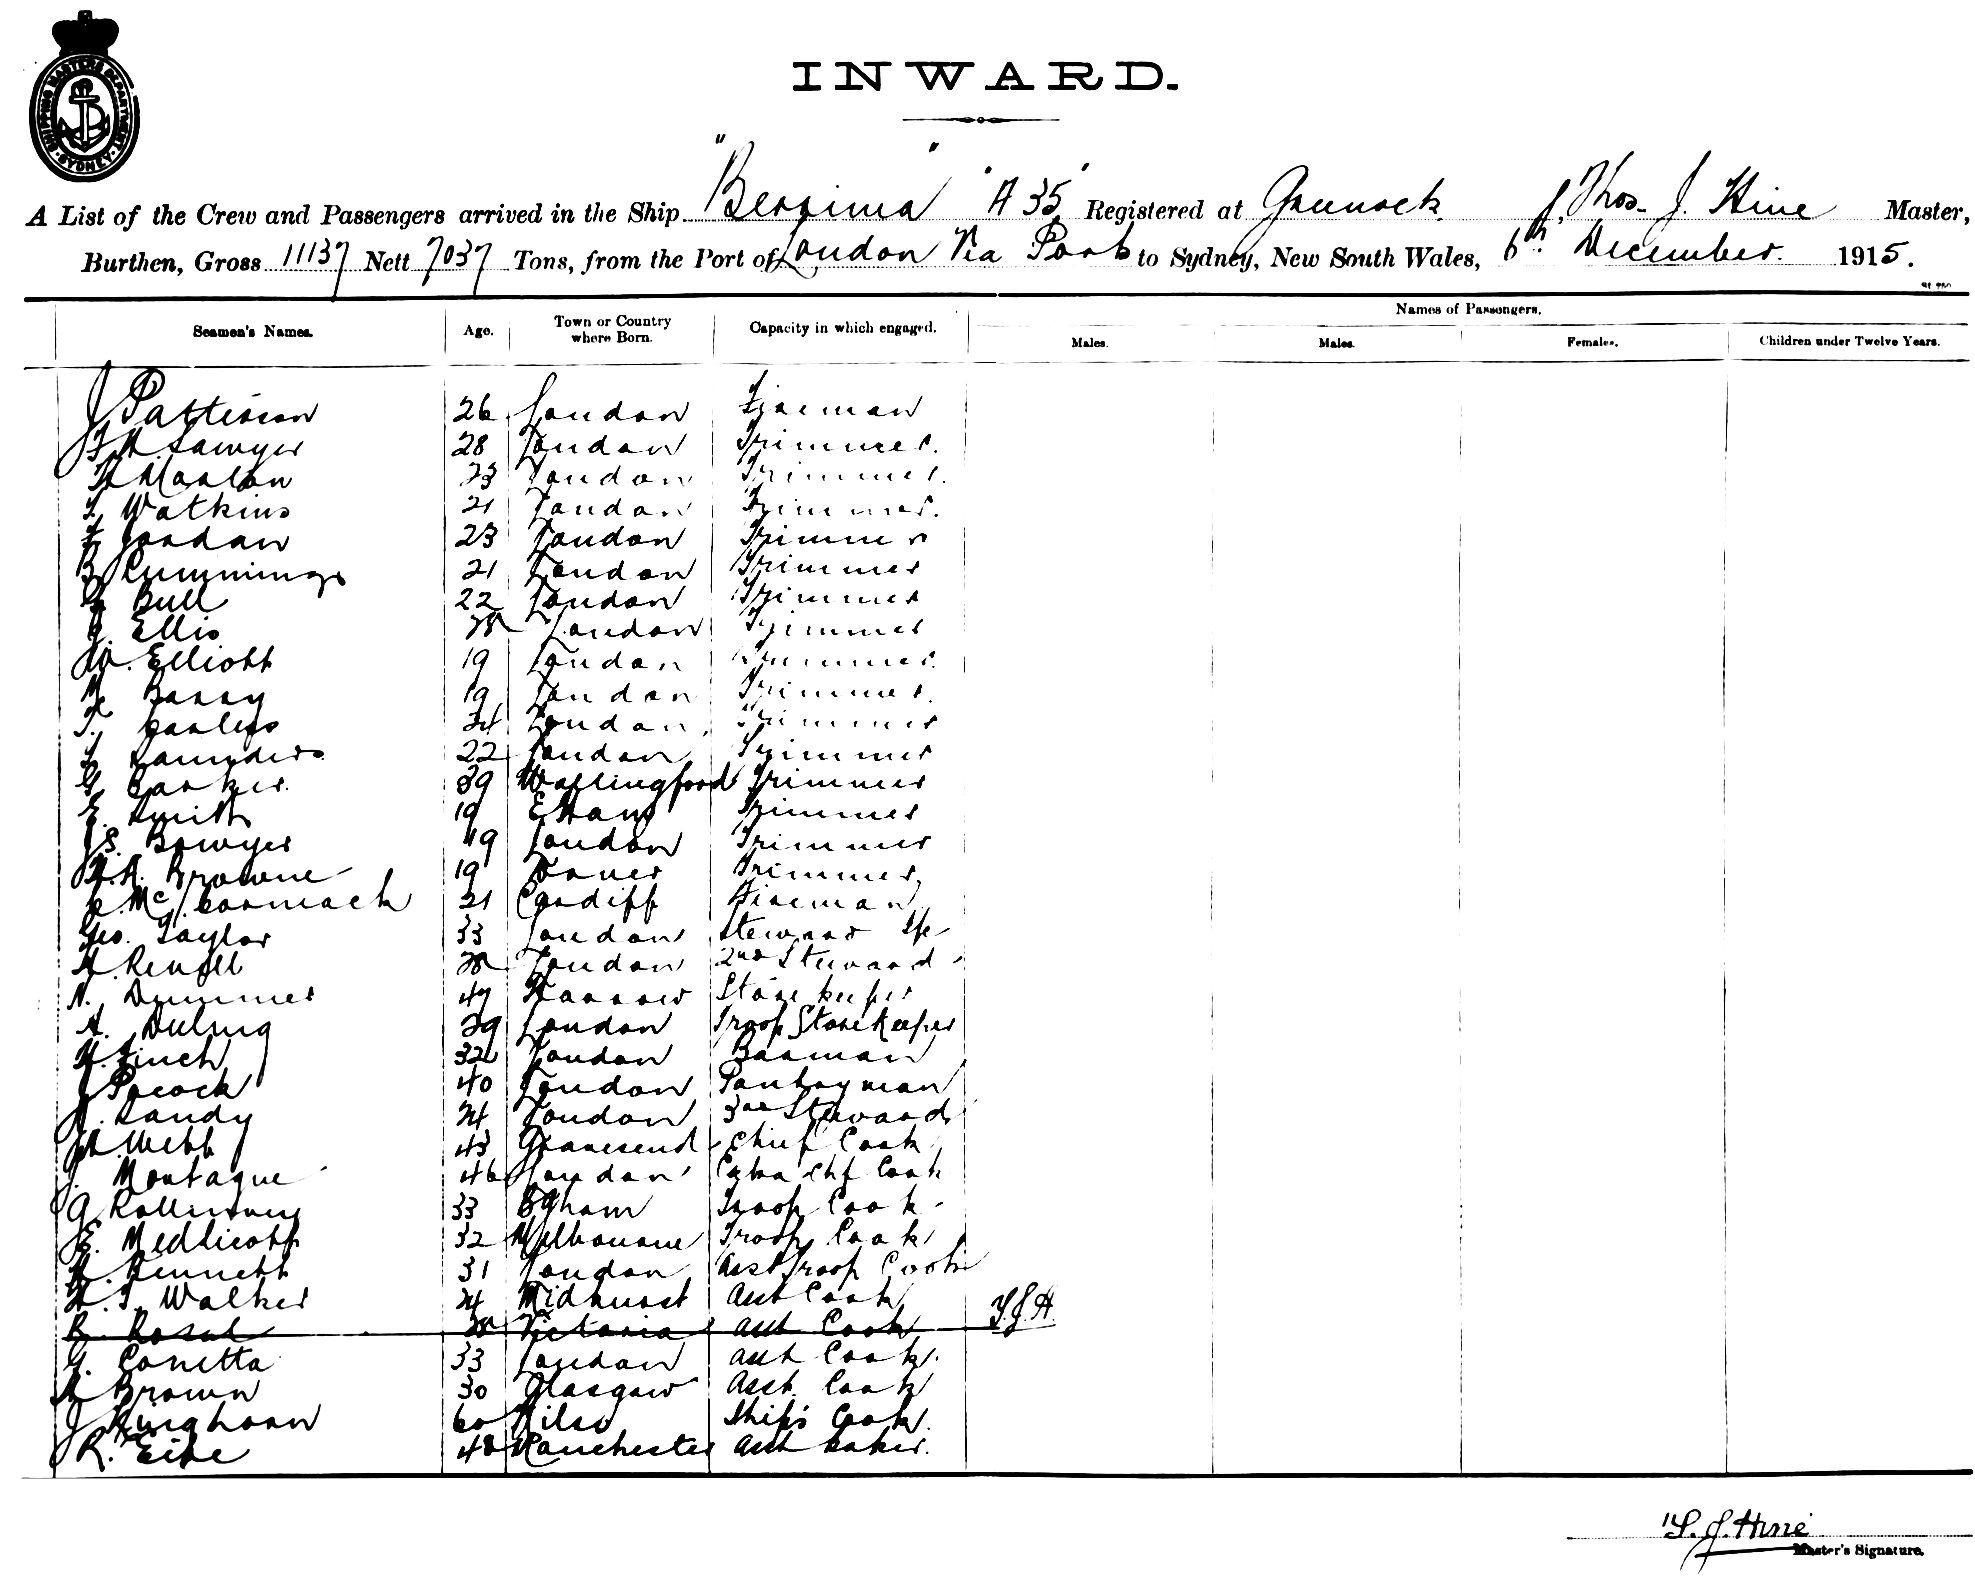 SHIPPING MASTERS DEPARTMENT SYDNEY
INWARD.
A List of the Crew and Passengers arrived in the Ship "Berrima" "A 35" Registered at Greenock, Thos. J. Hine Master,
Burthen, Gross 11137 Nett 7037 Tons, from the Port of London Via Ports to Sydney, New South Wales, 6th December 1915.
Names of Passengers.
Seamen's Names. Age. Town or Country where Born. Capacity in which engaged. Males. Males. Females. Children under Twelve Years.
J Pattison 26 London Fireman
Sawyer 28 London Trimmer.
23 London Trimmer.
Watkins 21 London Trimmer.
Jordan 23 London Trimmer
Cummings 21 London Trimmer
Bull 22 London Trimmer
J. Ellis London Trimmer
W. Elliott 19 London Trimmer.
Barry 19 London Trimmer.
24 London Trimmer
Saunders 22 London Trimmer
39 Wallingford Trimmer
E. Smith 19 Trimmer
J S. Bowyer 19 London Trimmer
Browne 19 Trimmer
McCormack 21 Cardiff Fireman
Geo. Taylor 33 London Steward
London 2nd Steward
Drummer 47 Harrow Store keeper
A. 39 London Troop Storekeeper
H. Finch 32 London Barman
J Pocock 40 London Pantryman
Sandy 24 London 3rd Steward
W. Webb 43 Gravesend Chief Cook
J. Montague 46 London Extra Chf Cook
33 Egham Troop Cook
E. Medlicott 32 Melbourne Troop Cook
31 London Asst Troop Cook
Walker 24 Midhurst Asst Cook
Victoria Asst Cook T.J.H.
G. Conetta 33 London Asst Cook.
Brown 30 Glasgow Asst. Cook
J Kinghorn 60 Ship's Cook.
R. 48 Manchester Asst baker.
T. J. Hine
Master's Signature.